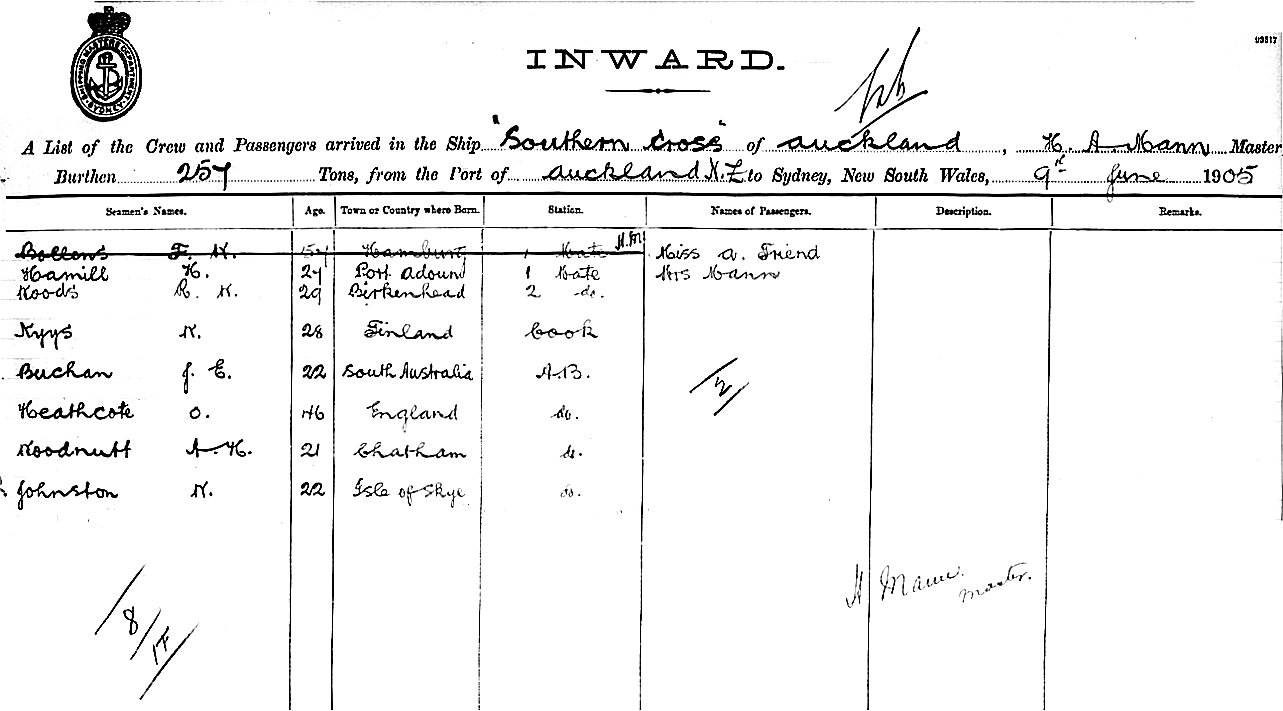 SHIPPING MASTERS DEPARTMENT SYDNEY
03517
INWARD.
A List of the Crew and Passengers arrived in the Ship "Southern Cross" of Auckland, H. A Mann Master
Burthen 257 Tons, from the Port of Auckland N.Z to Sydney, New South Wales, 9th June 1905
Seamen's Names. Age. Town or Country where Born. Station. Names of Passengers. Description. Remarks.
F. Hamburg 1 Mate H.M Miss A. Friend
Hamill H. 27 Port 1 Mate Mrs Mann
Woods R. W. 29 Birkenhead 2 do.
N. 28 Finland Cook
Buchan J. E. 22 South Australia A.B. 
Heathcote O. 46 England do.
Woodnutt A. H. 21 Chatham do.
Johnston N. 22 Isle of Skye do.
2
H Mann.
Master.
8
1F